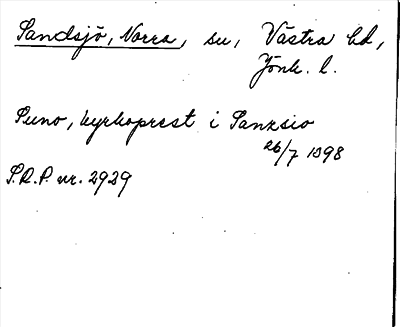 Sandsjö, Norra, sn, Västra hd,
Jönk. l.
Suno, kyrkoprest i Sanzsio
26/7 1398
S.R.P. nr. 2929